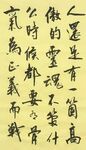 人還是有一箇高
傲的靈魂不管什
么時候都要有骨
氣為正義而戰